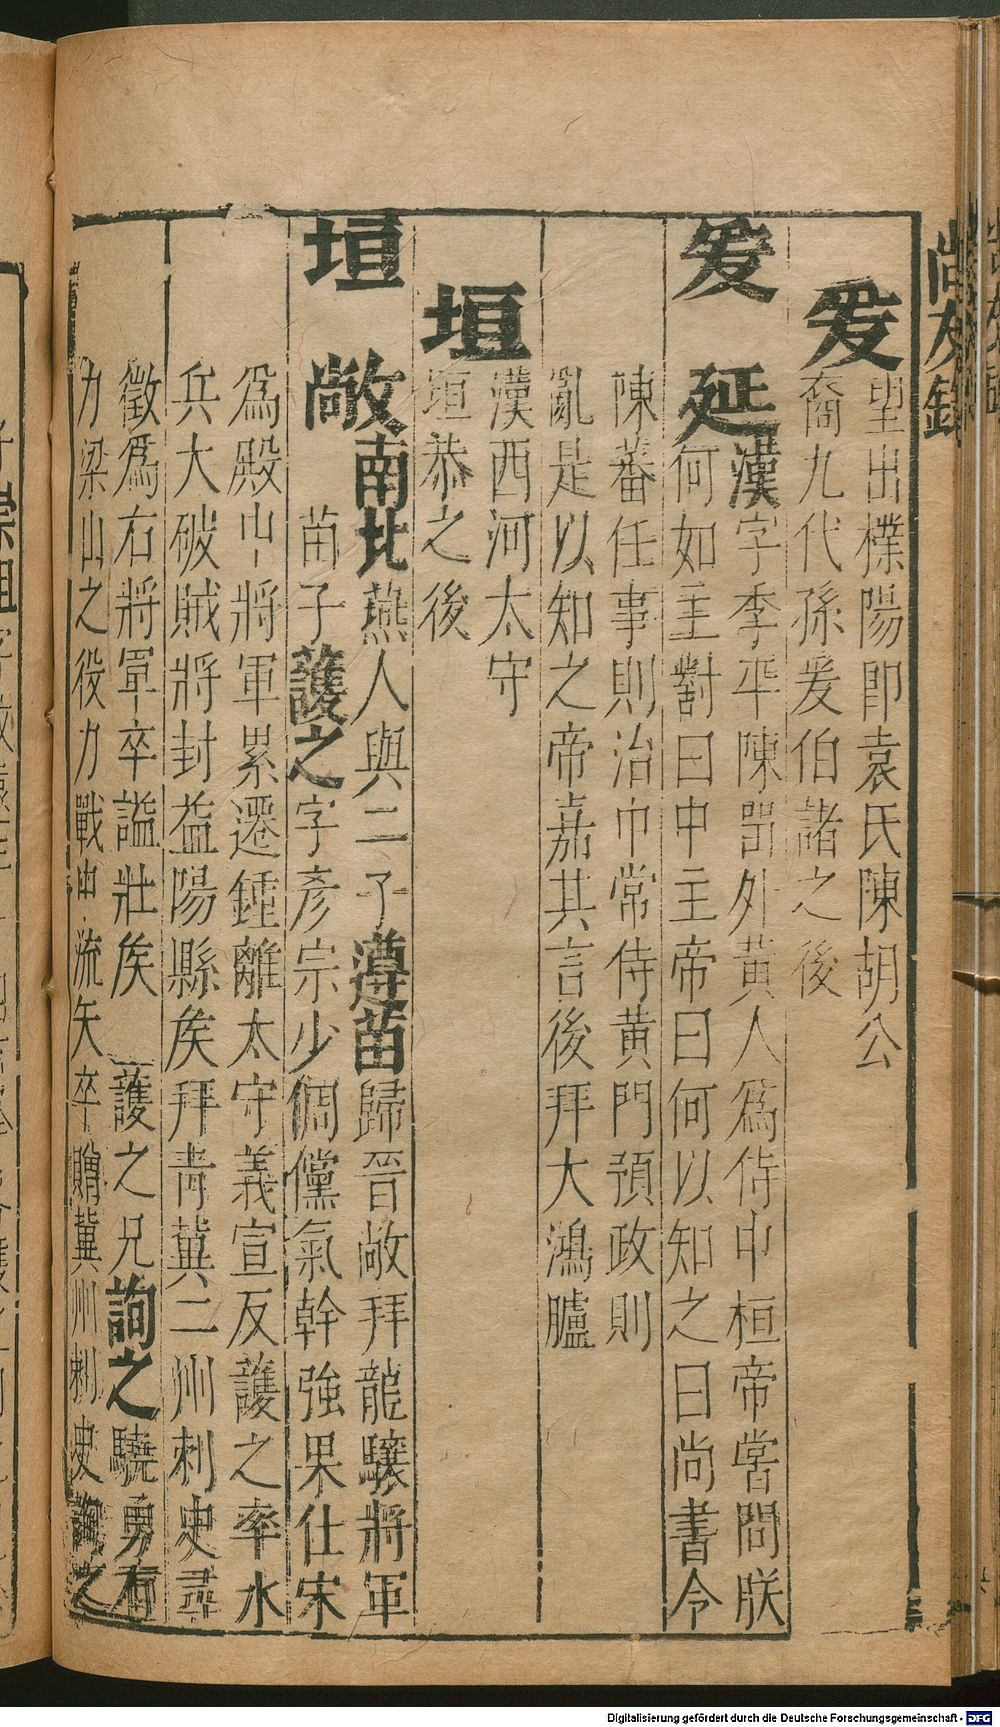 尚友錄
爰
望出樸陽即袁氏陳胡公
裔九代孫爰伯諸之後
爰延
漢字季平陳畱外黄人爲侍中桓帝嘗問朕
何如主對曰中主帝曰何以知之曰尚書令
陳蕃任事則治中常侍黄門預政則
亂是以知之帝嘉其言後拜大鴻臚
垣
漢西河太守
垣恭之後
垣敞
南北燕人與二子遵苗歸晉敞拜龍驤將軍
苗子護之字彥宗少倜儻氣幹強果仕宋
爲殿中將軍累遷鍾離太守義宣反護之率水
兵大破賊將封益陽縣矦拜青冀二州刺史尋
徵爲右將軍卒謚壯矦 護之兄詢之驍勇有
力梁山之役力戰中流矢卒贈冀州刺史詢之
Digitalisierung gefördert durch die Deutsche Forschungsgemeinschaft - DFG